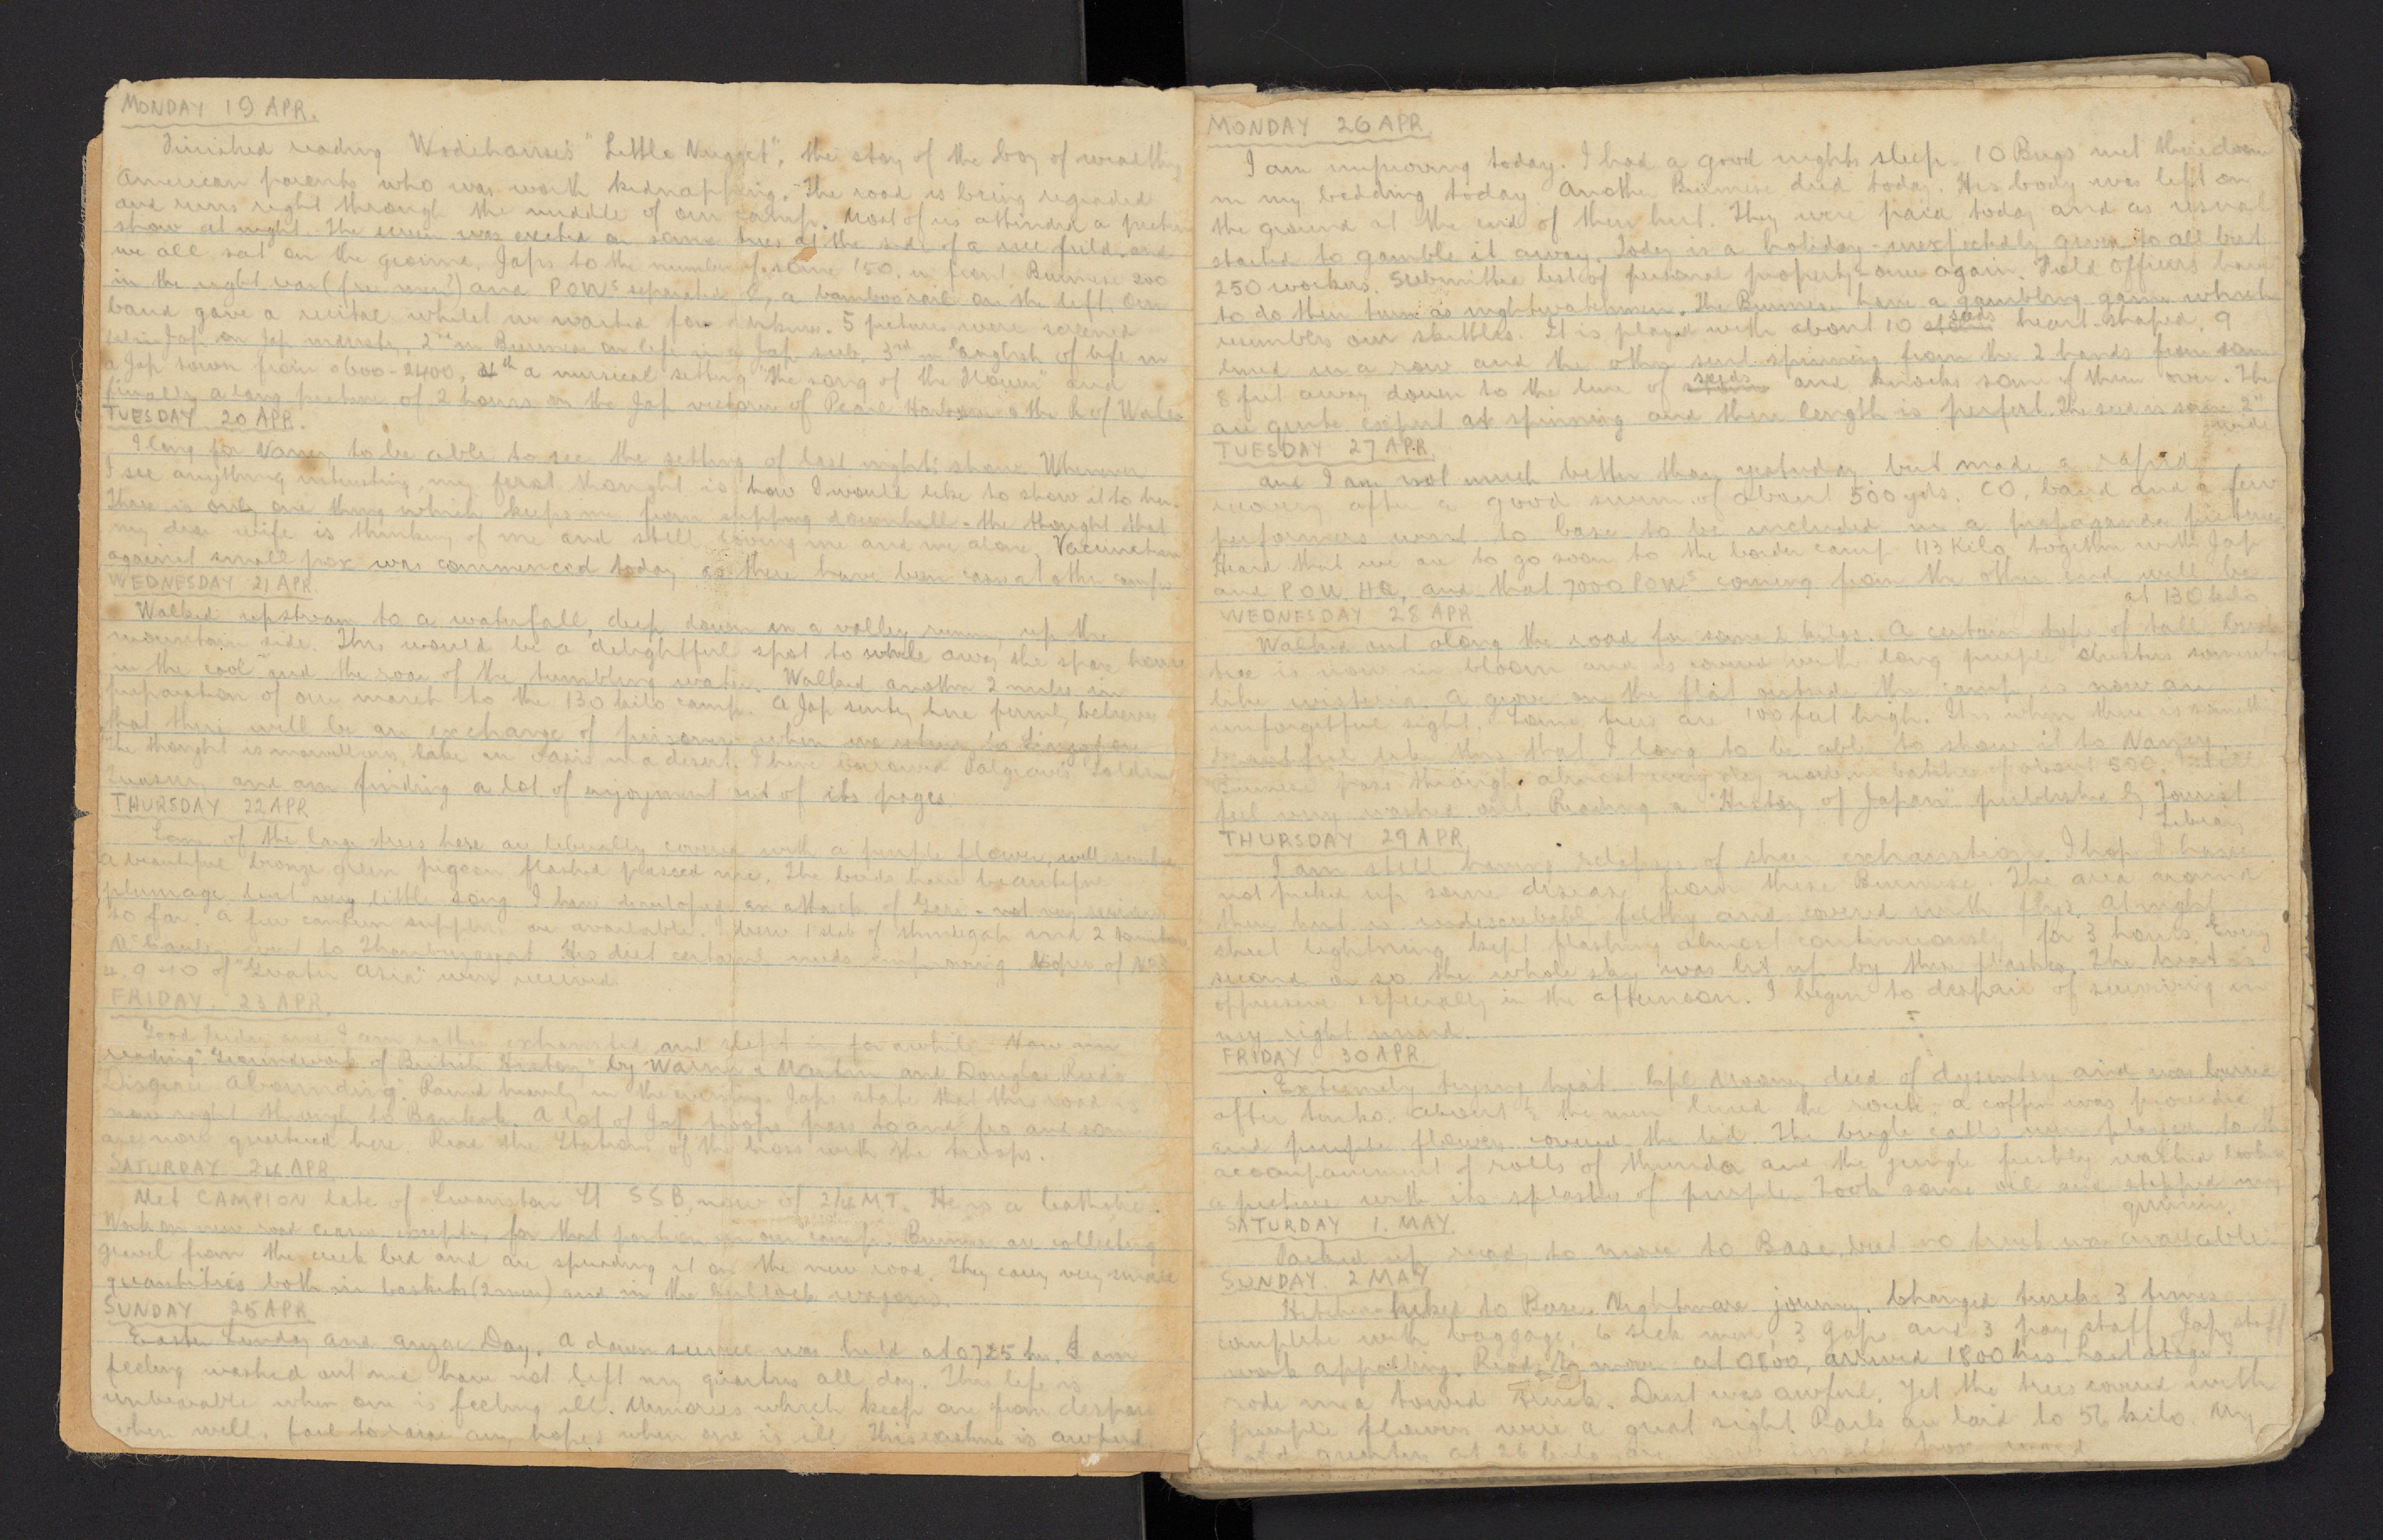 MONDAY 19 APR.
Finished reading Wodehouse's "Little Nugget", the story of the boy of wealthy
American parents who was worth kidnapping. The road is being regraded
and runs right through the middle of our camp. Most of us attended a picture
show at night. The screen was erected on some trees at the side of a rice field and
we all sat on the ground, Japs to the number of some 150, in front, Burmese 200
in the right rear (free men?) and POWs separated by a bamboo rail on the left. Our
band gave a recital whilst we waited for darkness. 5 pictures were screened
Jap on Jap 2nd in Burmese on life in a Jap sub, 3rd in English of life in
a Jap town from 0600-2400, 4th a musical setting "the song of the flower" and
finally a long picture of 2 hours on the Jap victories of Pearl Harbour & the P. of Wales
TUESDAY 20 APR.
I long for Nancy to be able to see the setting of last night's show. Whenever
I see anything interesting, my first thought is how I would like to show it to her.
There is only one thing which keeps me from slipping downhill - the thought that
my dear wife is thinking of me and still loving me and me alone. Vaccination
against small pox was commenced today as there have been cases at other camps
WEDNESDAY 21 APR.
Walked upstream to a waterfall, deep down in a valley running up the
mountain side. This would be a delightful spot to while away the spare hours
in the cool and the roar of the tumbling water. Walked another 2 miles in
preparation of our march to the 130 kilo camp. A Jap sentry here firmly believes
that there will be an exchange of prisoners when we return to Singapore
The thought is marvellous, like an oasis in a desert. I have borrowed Palgrave's Golden
Treasury and am finding a lot of enjoyment out of its pages
THURSDAY 22 APR
Some of the large trees here are liberally covered with a purple flower, well
A beautiful bronze green pigeon flashed passed me. The birds have beautiful
plumage but very little song. I have developed an attack of - not very serious
so far. A few canteen supplies are available. I drew 1 slab of shindegah and 2
went to Thanbyuzayat. His diet certainly needs improving. Copies of Nos
4, 9 & 10 of "Greater Asia" were received
FRIDAY, 23 APR.
Good Friday and I am rather exhausted and slept in for awhile. Now am
reading "Groundwork of British History" by Warner & Martin and Douglas Reed's
Disgrace Abounding". Rained heavily in the evening. Japs state that this road is
now right through to Bankok. A lot of Jap troops pass to and fro and some
are now quartered here. Read the Stations of the Cross with the troops.
SATURDAY 24 APR
Met CAMPION late of Swanston St SSB, now of 2/4 MT. He is a Catholic.
Work on new road ceases except for that portion in our camp. Burmese are collecting
gravel from the creek bed and are spreading it on the new road. They carry very small
quantities both in baskets (2 men) and in the bullock wagons.
SUNDAY 25 APR
Easter Sunday and Anzac Day. A dawn service was held at 0725 hrs. I am
feeling washed out and have not left my quarters all day. This life is
unbearable when one is feeling ill. Memories which keep one from despair
when well, fail to raise any hopes when one is ill. This existence is awful
MONDAY 26 APR.
I am improving today. I had a good nights sleep. 10 Bugs met their doom
in my bedding today. Another Burmese died today. His body was left on
the ground at the end of their hut. They were paid today and as usual
started to gamble it away. Today is a holiday - unexpectedly given to all but
250 workers. Submitted list of personal property - once again. Field Officers have
to do their turn as nightwatchmen. The Burmese have a gambling game which
resembles our skittles. It is played with about 10 seeds heart-shaped, 9
lined in a row and the other sent spinning from the 2 hands from some
8 feet away down to the line of seeds and knocks some of them over. The
are quite expert at spinning and their length is perfect. The seed is some 2"
wide
TUESDAY 27 APR.
and I am not much better than yesterday but made a rapid
recovery after a good swim of about 500 yds. CO, band and a few
performers went to base to be included in a propaganda picture.
Heard that we are to go soon to the border camp 113 Kilo together with Jap
and P.O.W. HQ, and that 7000 POWs coming from the other end will be
at 130 kilo
WEDNESDAY 28 APR
Walked out along the road for some 2 kilos. A certain type of tall
tree is now in bloom and is covered with long purple clusters somewhat
like wisteria. A grove on the flat outside the camp, is now an
unforgetful sight. Some trees are 100 feet high. It is when there is something
beautiful like this that I long to be able to show it to Nancy.
Burmese pass through almost every day now in batches of about 500. Still
feel very washed out. Reading a "History of Japan" published by Tourist
Library
THURSDAY 29 APR
I am still having relapses of sheer exhaustion. I hope I have
not picked up some disease from these Burmese. The area around
their hut is indescribably filthy and covered with flies. At night
sheet lightning kept flashing almost continuously for 3 hours. Every
second or so the whole sky was lit up by these flashes. The heat is
oppressive especially in the afternoon. I begin to despair of surviving in
my right mind.
FRIDAY 30 APR
Extremely trying heat. Cpl Mooney died of dysentry and was buried
after tenko. About ½ the men lined the route, a coffin was provided
and purple flowers covered the lid. The bugle calls were played to the
accompaniment of rolls of thunder and the jungle freshly washed looked
a picture with its splashes of purple. Took some oil and stopped my
quinine.
SATURDAY 1. MAY.
Packed up ready to move to Base, but no truck was available.
SUNDAY. 2 MAY
Hitch-hiked to Base. Nightmare journey. Changed trucks 3 times
complete with baggage, 6 sick men, 3 Japs and 3 pay staff. Jap staff
work appalling. Ready to move at 0800, arrived 1800 hrs. Last stage
rode in a towed truck. Dust was awful. Yet the trees covered with
purple flowers were a great sight. Rails are laid to 56 kilo. My
old quarters at 26 kilo are